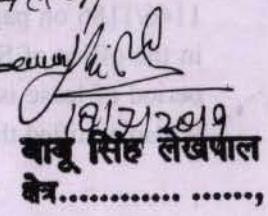 18/7/2019
बाबू सिंह लेखपाल
क्षेत्र............ ......,